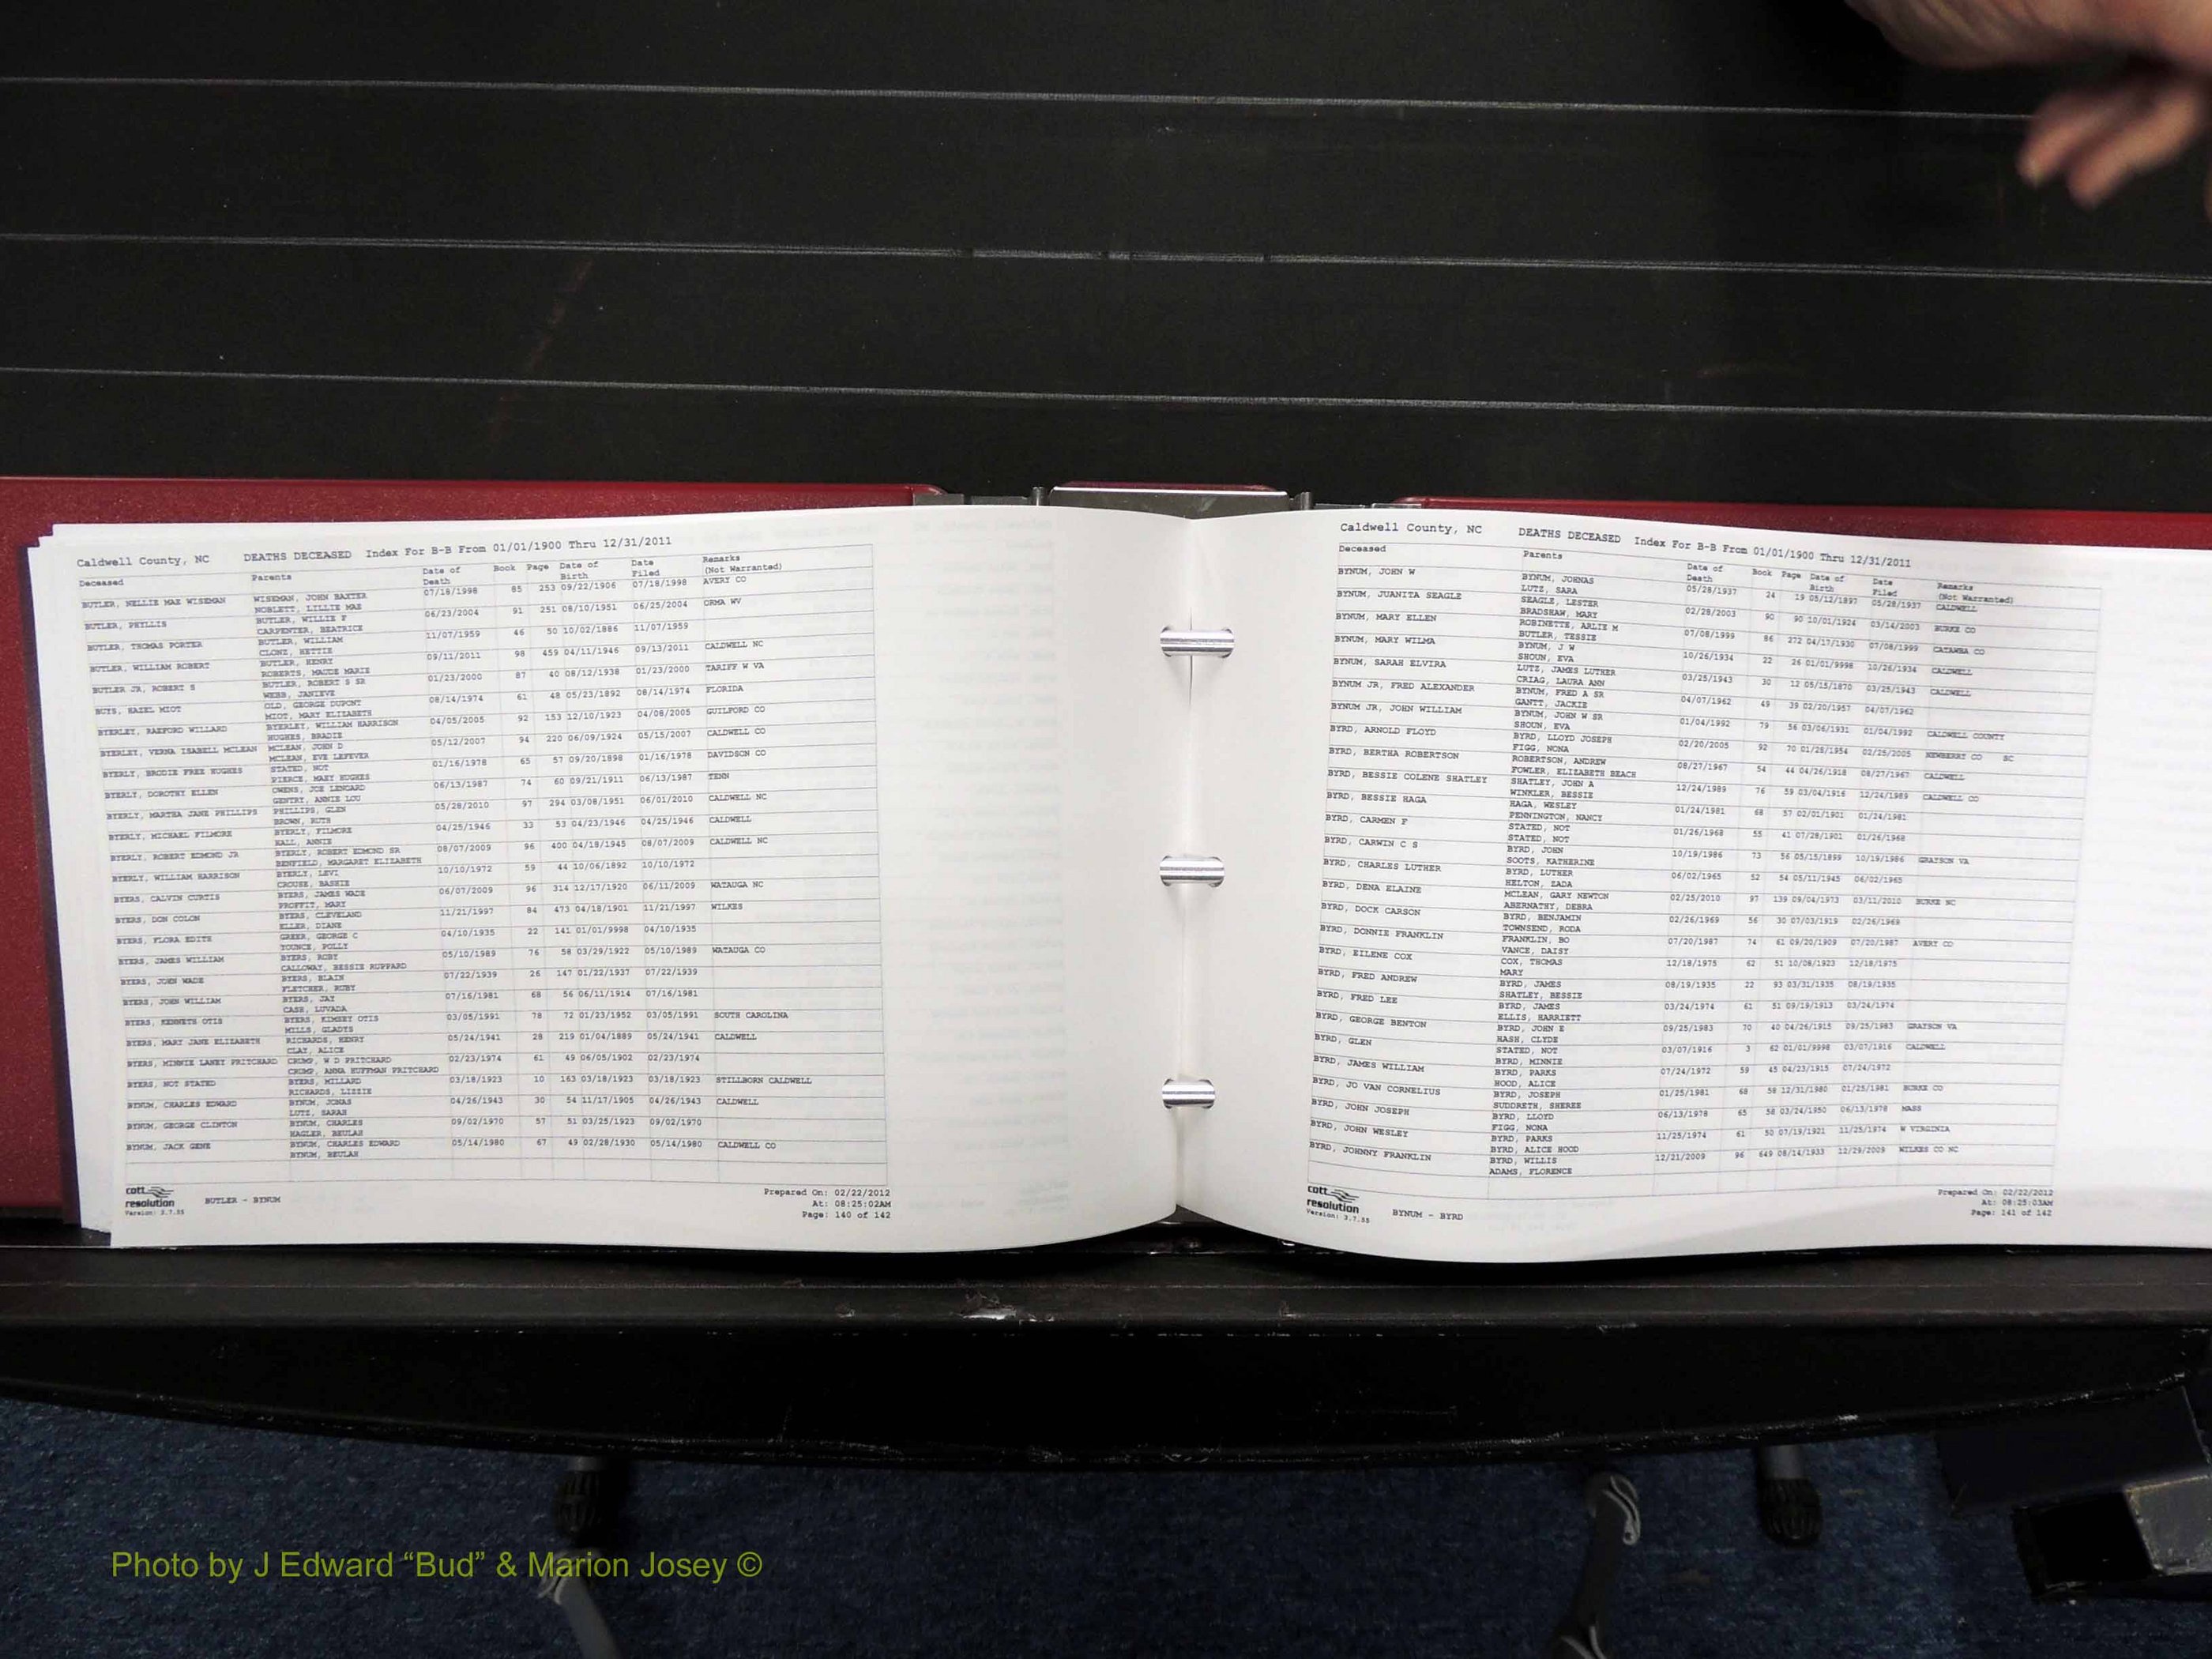 Caldwell County, NC DEATHS DECEASED Index For B-B From 01/01/1900 Thru 12/31/2011
Deceased Parents Date of Death Book Page Date of Birth Date Filed Remarks (Not Warranted)
BUTLER, NELLIE MAE WISEMAN WISEMAN, JOHN BAXTER 07/18/1998 85 253 09/22/1906 07/18/1998 AVERY CO
NOBLETT, LILLIE MAE
BUTLER, PHYLLIS BUTLER, WILLIE F 06/23/2004 91 251 08/10/1951 06/25/2004 ORMA WV
CARPENTER, BEATRICE
BUTLER, THOMAS PORTER BUTLER, WILLIAM 11/07/1959 46 50 10/02/1886 11/07/1959
CLONZ, HETTIE
BUTLER, WILLIAM ROBERT BUTLER, HENRY 09/11/2011 98 459 04/11/1946 09/13/2011 CALDWELL NC
ROBERTS, MAUDE MARIE
BUTLER JR, ROBERT S BUTLER, ROBERT S SR 01/23/2000 87 40 08/12/1938 01/23/2000 TARIFF W VA
WEBB, JANIEVE
BUYS, HAZEL MIOT OLD, GEORGE DUPONT 08/14/1974 61 48 05/23/1892 08/14/1974 FLORIDA
MIOT, MARY ELIZABETH
BYERLEY, RAEFORD WILLARD BYERLEY, WILLIAM HARRISON 04/05/2005 92 153 12/10/1923 04/08/2005 GUILFORD CO
HUGHES, BRADIE
BYERLEY, VERNA ISABELL MCLEAN MCLEAN, JOHN D 05/12/2007 94 220 06/09/1924 05/15/2007 CALDWELL CO
MCLEAN, EVE LEFEVER
BYERLY, BRODIE FREE HUGHES STATED, NOT 01/16/1978 65 57 09/20/1898 01/16/1978 DAVIDSON CO
PIERCE, MARY HUGHES
BYERLY, DOROTHY ELLEN OWENS, JOE LENOARD 06/13/1987 74 60 09/21/1911 06/13/1987 TENN
GENTRY, ANNIE LOU
BYERLY, MARTHA JANE PHILLIPS PHILLIPS, GLEN 05/28/2010 97 294 03/08/1951 06/01/2010 CALDWELL NC
BROWN, RUTH
BYERLY, MICHAEL FILMORE BYERLY, FILMORE 04/25/1946 33 53 04/23/1946 04/25/1946 CALDWELL
HALL, ANNIE
BYERLY, ROBERT EDMOND JR BYERLY, ROBERT EDMOND SR 08/07/2009 96 400 04/18/1945 08/07/2009 CALDWELL NC
BENFIELD, MARGARET ELIZABETH
BYERLY, WILLIAM HARRISON BYERLY, LEVI 10/10/1972 59 44 10/06/1892 10/10/1972
CROUSE, BASHIE
BYERS, CALVIN CURTIS BYERS, JAMES WADE 06/07/2009 96 314 12/17/1920 06/11/2009 WATAUGA NC
PROFFIT, MARY
BYERS, DON COLON BYERS, CLEVELAND 11/21/1997 84 473 04/18/1901 11/21/1997 WILKES
ELLER, DIANE
BYERS, FLORA EDITH GREER, GEORGE C 04/10/1935 22 141 01/01/9998 04/10/1935
YOUNCE, POLLY
BYERS, JAMES WILLIAM BYERS, ROBY 05/10/1989 76 58 03/29/1922 05/10/1989 WATAUGA CO
CALLOWAY, BESSIE RUPPARD
BYERS, JOHN WADE BYERS, BLAIN 07/22/1939 26 147 01/22/1937 07/22/1939
FLETCHER, RUBY
BYERS, JOHN WILLIAM BYERS, JAY 07/16/1981 68 56 06/11/1914 07/16/1981
CASH, LUVADA
BYERS, KENNETH OTIS BYERS, KIMSEY OTIS 03/05/1991 78 72 01/23/1952 03/05/1991 SOUTH CAROLINA
MILLS, GLADYS
BYERS, MARY JANE ELIZABETH RICHARDS, HENRY 05/24/1941 28 219 01/04/1889 05/24/1941 CALDWELL
CLAY, ALICE
BYERS, MINNIE LANEY PRITCHARD CRUMP, W D PRITCHARD 02/23/1974 61 49 06/05/1902 02/23/1974
CRUMP, ANNA HUFFMAN PRITCHARD
BYERS, NOT STATED BYERS, MILLARD 03/18/1923 10 163 03/18/1923 03/18/1923 STILLBORN CALDWELL
RICHARDS, LIZZIE
BYNUM, CHARLES EDWARD BYNUM, JONAS 04/26/1943 30 54 11/17/1905 04/26/1943 CALDWELL
LUTZ, SARAH
BYNUM, GEORGE CLINTON BYNUM, CHARLES 09/02/1970 57 51 03/25/1923 09/02/1970
HAGLER, BEULAH
BYNUM, JACK GENE BYNUM, CHARLES EDWARD 05/14/1980 67 49 02/28/1930 05/14/1980 CALDWELL CO
BYNUM, BEULAH
cott
resolution
Version: 3.7.55
BUTLER - BYNUM
Prepared On: 02/22/2012
At: 08:25:02AM
Page: 140 of 142
Caldwell County, NC DEATHS DECEASED Index For B-B From 01/01/1900 Thru 12/31/2011
Deceased Parents Date of Death Book Page Date of Birth Date Filed Remarks (Not Warranted)
BYNUM, JOHN W BYNUM, JOHNAS 05/28/1937 24 19 05/12/1897 05/28/1937 CALDWELL
LUTZ, SARA
BYNUM, JUANITA SEAGLE SEAGLE, LESTER 02/28/2003 90 90 10/01/1924 03/14/2003 BURKE CO
BRADSHAW, MARY
BYNUM, MARY ELLEN ROBINETTE, ARLIE M 07/08/1999 86 272 04/17/1930 07/08/1999 CATAWBA CO
BUTLER, TESSIE
BYNUM, MARY WILMA BYNUM, J W 10/26/1934 22 26 01/01/9998 10/26/1934 CALDWELL
SHOUN, EVA
BYNUM, SARAH ELVIRA LUTZ, JAMES LUTHER 03/25/1943 30 12 05/15/1870 03/25/1943 CALDWELL
CRIAG, LAURA ANN
BYNUM JR, FRED ALEXANDER BYNUM, FRED A SR 04/07/1962 49 39 02/20/1957 04/07/1962
GANTT, JACKIE
BYNUM JR, JOHN WILLIAM BYNUM, JOHN W SR 01/04/1992 79 56 03/06/1931 01/04/1992 CALDWELL COUNTY
SHOUN, EVA
BYRD, ARNOLD FLOYD BYRD, LLOYD JOSEPH 02/20/2005 92 70 01/28/1954 02/25/2005 NEWBERRY CO SC
FIGG, NONA
BYRD, BERTHA ROBERTSON ROBERTSON, ANDREW 08/27/1967 54 44 04/26/1918 08/27/1967 CALDWELL
FOWLER, ELIZABETH BEACH
BYRD, BESSIE COLENE SHATLEY SHATLEY, JOHN A 12/24/1989 76 59 03/04/1916 12/24/1989 CALDWELL CO
WINKLER, BESSIE
BYRD, BESSIE HAGA HAGA, WESLEY 01/24/1981 68 57 02/01/1901 01/24/1981
PENNINGTON, NANCY
BYRD, CARMEN F STATED, NOT 01/26/1968 55 41 07/28/1901 01/26/1968
STATED, NOT
BYRD, CARWIN C S BYRD, JOHN 10/19/1986 73 56 05/15/1899 10/19/1986 GRAYSON VA
SOOTS, KATHERINE
BYRD, CHARLES LUTHER BYRD, LUTHER 06/02/1965 52 54 05/11/1945 06/02/1965
HELTON, ZADA
BYRD, DENA ELAINE MCLEAN, GARY NEWTON 02/25/2010 97 139 09/04/1973 03/11/2010 BURKE NC
ABERNATHY, DEBRA
BYRD, DOCK CARSON BYRD, BENJAMIN 02/26/1969 56 30 07/03/1919 02/26/1969
TOWNSEND, RODA
BYRD, DONNIE FRANKLIN FRANKLIN, BO 07/20/1987 74 61 09/20/1909 07/20/1987 AVERY CO
VANCE, DAISY
BYRD, EILENE COX COX, THOMAS 12/18/1975 62 51 10/08/1923 12/18/1975
MARY
BYRD, FRED ANDREW BYRD, JAMES 08/19/1935 22 93 03/31/1935 08/19/1935
SHATLEY, BESSIE
BYRD, FRED LEE BYRD, JAMES 03/24/1974 61 51 09/19/1913 03/24/1974
ELLIS, HARRIETT
BYRD, GEORGE BENTON BYRD, JOHN E 09/25/1983 70 40 04/26/1915 09/25/1983 GRAYSON VA
HASH, CLYDE
BYRD, GLEN STATED, NOT 03/07/1916 3 62 01/01/9998 03/07/1916 CALDWELL
BYRD, MINNIE
BYRD, JAMES WILLIAM BYRD, PARKS 07/24/1972 59 45 04/23/1915 07/24/1972
HOOD, ALICE
BYRD, JO VAN CORNELIUS BYRD, JOSEPH 01/25/1981 68 58 12/31/1980 01/25/1981 BURKE CO
SUDDRETH, SHEREE
BYRD, JOHN JOSEPH BYRD, LLOYD 06/13/1978 65 58 03/24/1950 06/13/1978 MASS
FIGG, NONA
BYRD, JOHN WESLEY BYRD, PARKS 11/25/1974 61 50 07/19/1921 11/25/1974 W VIRGINIA
BYRD, ALICE HOOD
BYRD, JOHNNY FRANKLIN BYRD, WILLIS 12/21/2009 96 649 08/14/1933 12/29/2009 WILKES CO NC
ADAMS, FLORENCE
cott
resolution
Version: 3.7.55
BYNUM - BYRD
Prepared On: 02/22/2012
At: 08:25:03AM
Page: 141 of 142
Photo by J Edward “Bud” & Marion Josey ©